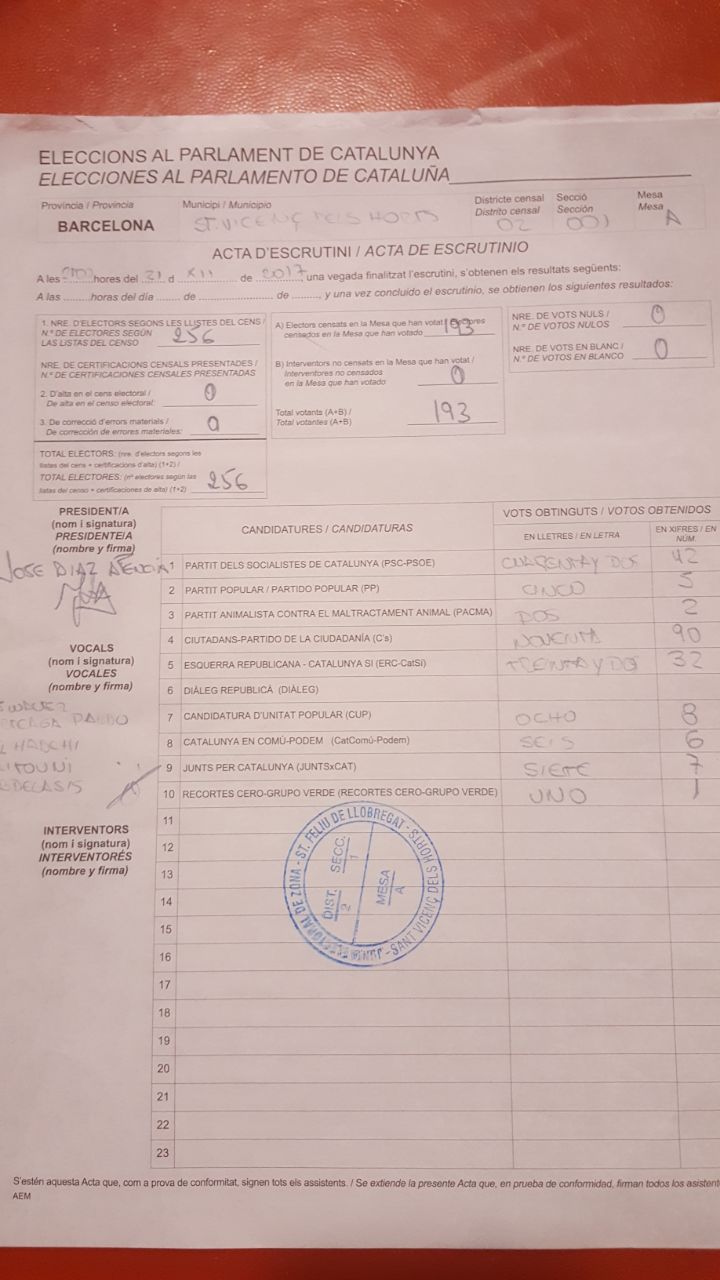 ELECCIONS AL PARLAMENT DE CATALUNYA
ELECCIONES AL PARLAMENTO DE CATALUÑA
Província / Provincia
BARCELONA
Municipi / Municipio
ST. VICENÇ DELS HORTS
Districte censal
Distrito censal
02
Secció
Sección
001
Mesa
Mesa
A
ACTA D'ESCRUTINI / ACTA DE ESCRUTINIO
A les hores del 21 d XII de 2017, una vegada finalitzat l'escrutini, s'obtenen els resultats següents:
A las ........horas del día ...... de ...................... de ........, y una vez concluido el escrutinio, se obtienen los siguientes resultados:
1. NRE. D'ELECTORS SEGONS LES LLISTES DEL CENS /
N.º DE ELECTORES SEGÚN
LAS LISTAS DEL CENSO 256
NRE. DE CERTIFICACIONS CENSALS PRESENTADES /
N.º DE CERTIFICACIONES CENSALES PRESENTADAS
2. D'alta en el cens electoral /
De alta en el censo electoral: 0
3. De correcció d'errors materials /
De corrección de errores materiales: 0
TOTAL ELECTORS: (nre. d'electors segons les
llistes del cens + certificacions d'alta) (1+2) /
TOTAL ELECTORES: (nº electores según las
listas del censo + certificaciones de alta) (1+2) 256
A) Electors censats en la Mesa que han votat
censados en la Mesa que han votado 193
B) Interventors no censats en la Mesa que han votat /
Interventores no censados
en la Mesa que han votado 0
Total votants (A+B) /
Total votantes (A+B) 193
NRE. DE VOTS NULS /
N.º DE VOTOS NULOS 0
NRE. DE VOTS EN BLANC /
N.º DE VOTOS EN BLANCO 0
PRESIDENT/A
(nom i signatura)
PRESIDENTE/A
(nombre y firma)
JOSE DIAZ
VOCALS
(nom i signatura)
VOCALES
(nombre y firma)
INTERVENTORS
(nom i signatura)
INTERVENTORES
(nombre y firma)
CANDIDATURES / CANDIDATURAS
VOTS OBTINGUTS / VOTOS OBTENIDOS
EN LLETRES / EN LETRA
EN XIFRES / EN
NÚM.
1 PARTIT DELS SOCIALISTES DE CATALUNYA (PSC-PSOE) CUARENTA Y DOS 42
2 PARTIT POPULAR / PARTIDO POPULAR (PP) CINCO 5
3 PARTIT ANIMALISTA CONTRA EL MALTRACTAMENT ANIMAL (PACMA) DOS 2
4 CIUTADANS-PARTIDO DE LA CIUDADANÍA (C's) NOVENTA 90
5 ESQUERRA REPUBLICANA - CATALUNYA SI (ERC-CatSí) TREINTA Y DOS 32
6 DIÀLEG REPUBLICÀ (DIÀLEG)
7 CANDIDATURA D'UNITAT POPULAR (CUP) OCHO 8
8 CATALUNYA EN COMÚ-PODEM (CatComú-Podem) SEIS 6
9 JUNTS PER CATALUNYA (JUNTSxCAT) SIETE 7
10 RECORTES CERO-GRUPO VERDE (RECORTES CERO-GRUPO VERDE) UNO 1
11
12
13
14
15
16
17
18
19
20
21
22
23
ELECTORAL DE ZONA - ST. FELIU DE LLOBREGAT - SANT VICENÇ DELS HORTS
DIST. 2
SECC. 1
MESA A
S'estén aquesta Acta que, com a prova de conformitat, signen tots els assistents. / Se extiende la presente Acta que, en prueba de conformidad, firman todos los
AEM